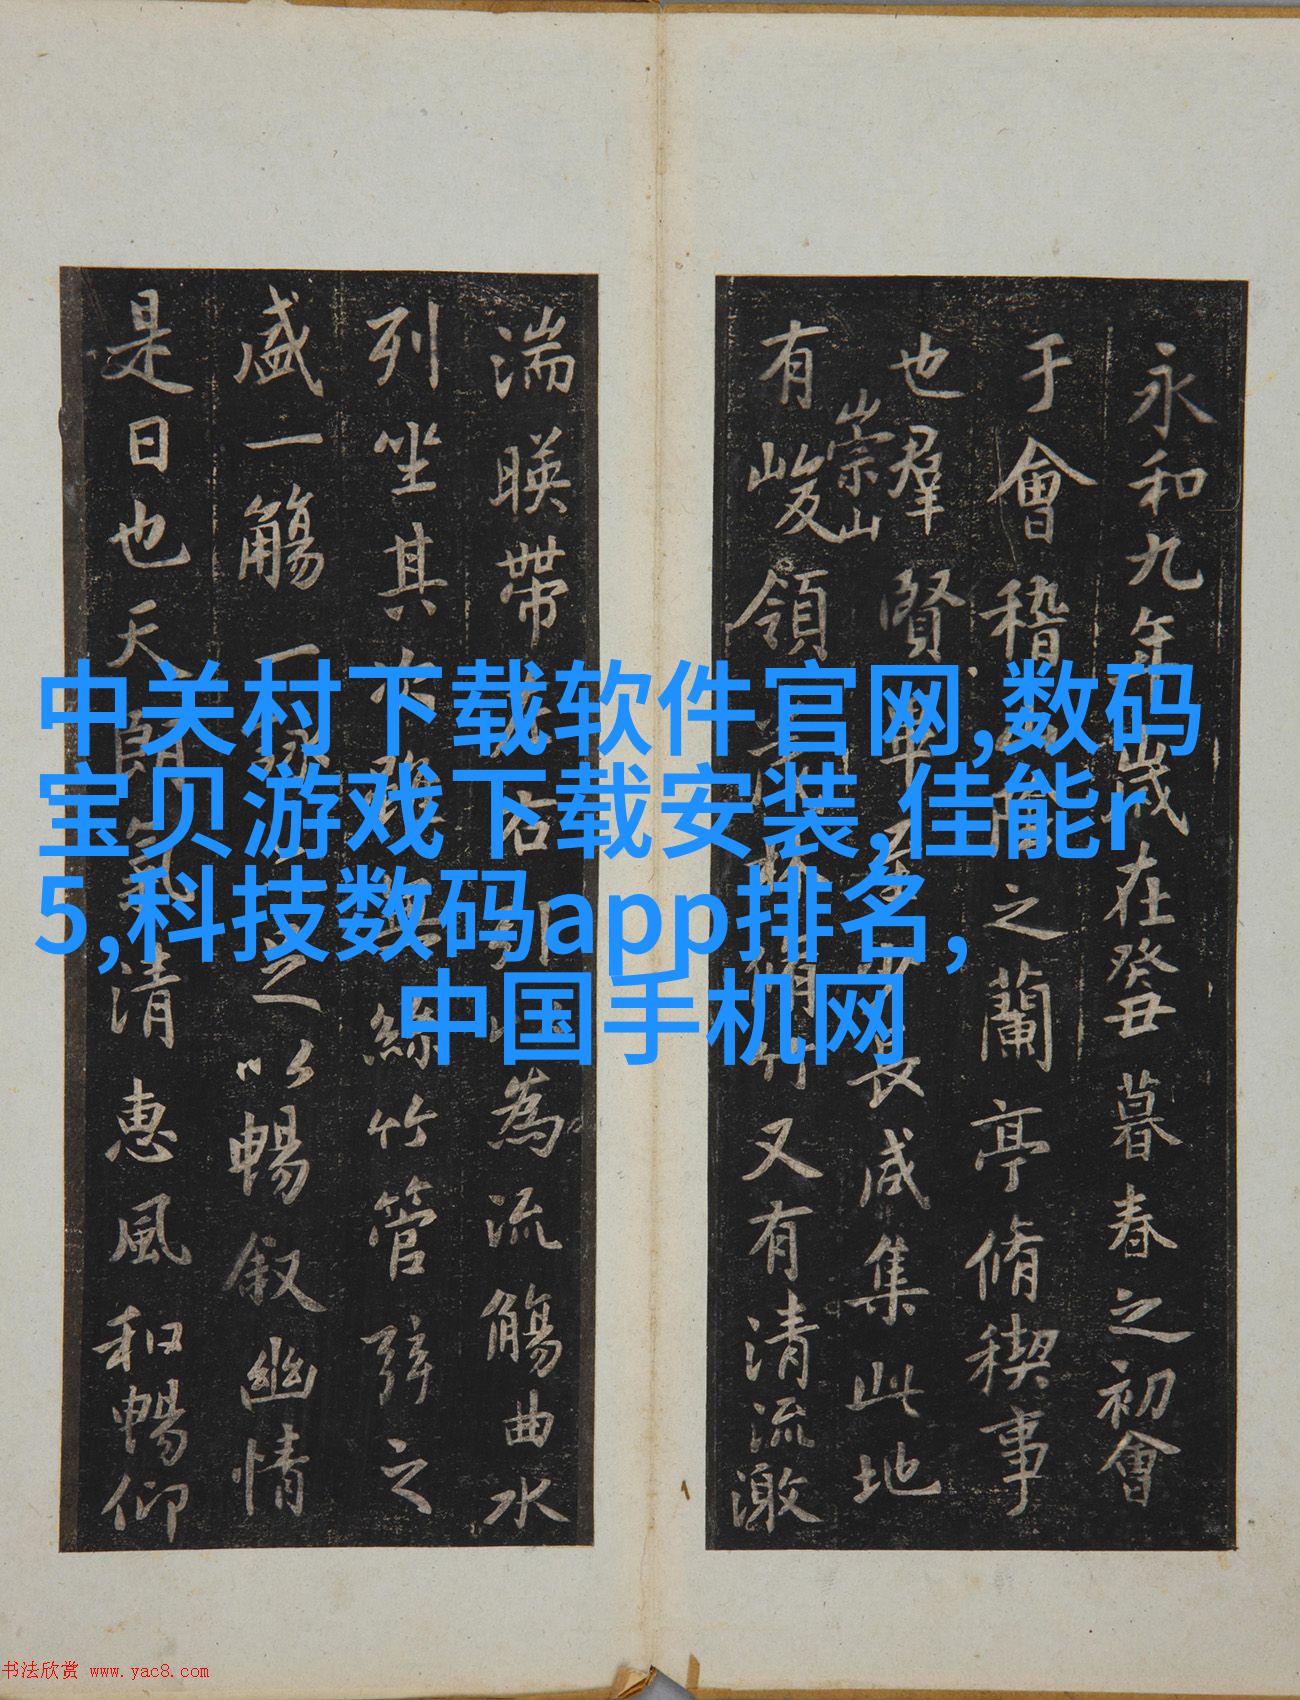 永和九年歲在癸丑暮春之初會
于會稽之蘭亭脩稧事
也羣賢畢至少長咸集此地
崇山
有峻領茂林脩竹又有清流激
湍暎帶左右引以為流觴曲水
列坐其次絲竹管弦之
盛一觴一詠足以暢叙幽情
是日也天朗氣清惠風和暢仰
中关村下载软件官网,数码
宝贝游戏下载安装,佳能r
5,科技数码app排名,
中国手机网
书法欣赏 www.yac8.com